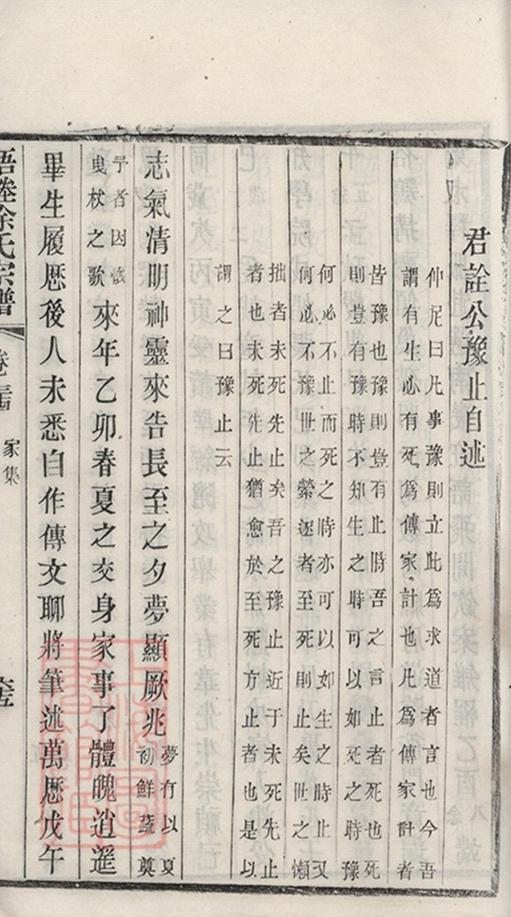 君詮公豫止自述
仲尼曰凡事豫則立此爲求道者言也今吾
謂有生必有死爲傳家計也凡爲傳家計者
皆豫也豫則豈有止時吾之言止者死也死
則豈有豫時不知生之時可以如死之時豫
何必不止而死之時亦可以如生之時止又
何必不豫世之縈逐者至死則止矣世之懶
拙者未死先止矣吾之豫止近于未死先止
者也未死先止猶愈於至死方止者也是以
謂之曰豫止云
志氣清明神靈來告長至之夕夢顯厥兆夢有以夏初鮮蔬奠
予者因憶曳杖之歌來年乙卯春夏之交身家事了體魄逍遙
畢生履歷後人未悉自作傳文聊將筆述萬歷戊午
徐氏宗譜
家集